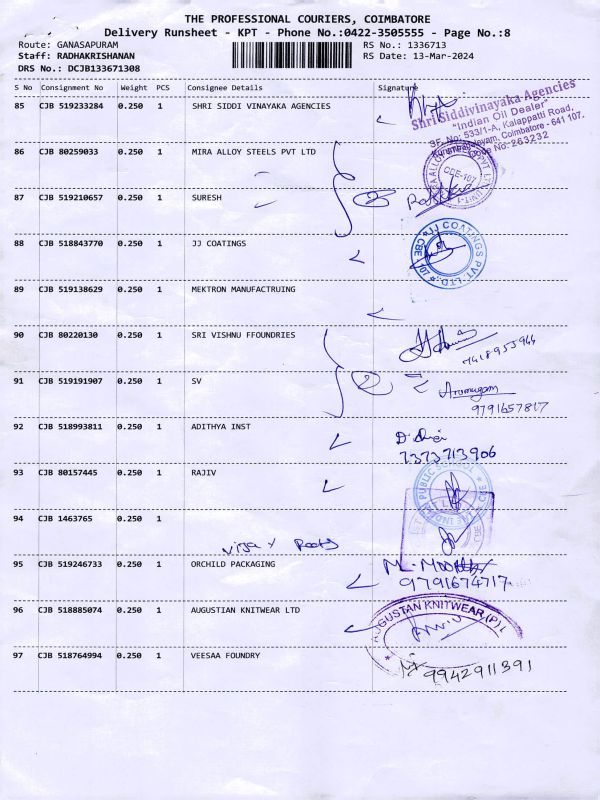 THE PROFESSIONAL COURIERS, COIMBATORE
Delivery Runsheet - KPT - Phone No.:0422-3505555 - Page No.:8
Route: GANASAPURAM RS No.: 1336713
Staff: RADHAKRISHANAN RS Date: 13-Mar-2024
DRS No.: DCJB133671308
S No Consignment No Weight PCS Consignee Details Signature
85 CJB 519233284 0.250 1 SHRI SIDDI VINAYAKA AGENCIES
Shri Siddivinayaka Agencies
"Indian Oil Dealer"
SF. No: 533/1-A, Kalappatti Road,
Coimbatore - 641 107.
No: 263232
86 CJB 80259033 0.250 1 MIRA ALLOY STEELS PVT LTD
CBE-107
UNIT-1
87 CJB 519210657 0.250 1 SURESH
2
88 CJB 518843770 0.250 1 JJ COATINGS
JJ COATINGS PVT. LTD. CBE 107
89 CJB 519138629 0.250 1 MEKTRON MANUFACTRUING
90 CJB 80220130 0.250 1 SRI VISHNU FFOUNDRIES
7418953944
91 CJB 519191907 0.250 1 SV
2 Arumugam
9791657817
92 CJB 518993811 0.250 1 ADITHYA INST
7373713906
93 CJB 80157445 0.250 1 RAJIV
PUBLIC SCHOOL
94 CJB 1463765 0.250 1
95 CJB 519246733 0.250 1 ORCHILD PACKAGING
9791674717
96 CJB 518885074 0.250 1 AUGUSTIAN KNITWEAR LTD
AUGUSTAN KNITWEAR (P) L
97 CJB 518764994 0.250 1 VEESAA FOUNDRY
9942911391